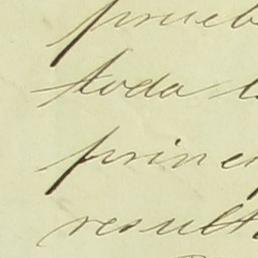 prueb
toda l
princ
result